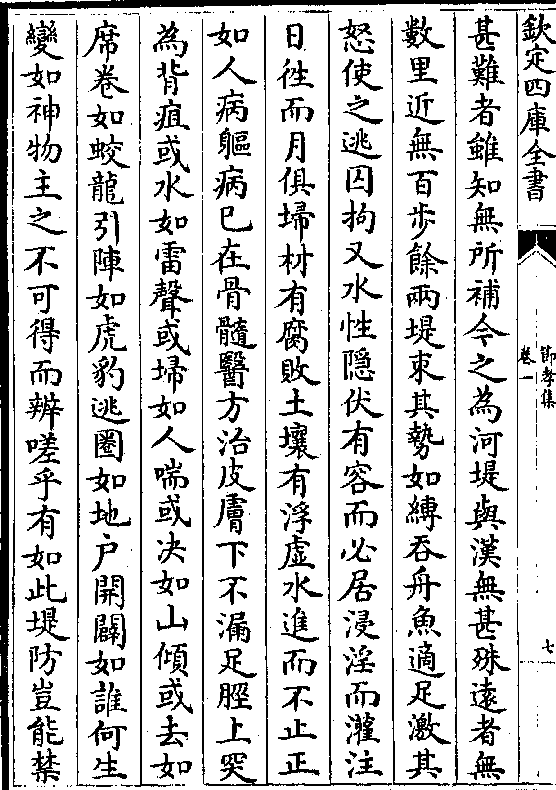 欽定四庫全書
節孝集
卷一
七
甚難者雖知無所補今之為河堤與漢無甚殊遠者無
數里近無百步餘兩堤束其勢如縛吞舟魚適足激其
怒使之逃囚拘又水性隠伏有容而必居浸淫而灌注
日徃而月俱埽材有腐敗土壤有浮虚水進而不止正
如人病軀病已在骨髓醫方治皮膚下不漏足脛上突
為背疽或水如雷聲或埽如人喘或决如山傾或去如
席卷如蛟龍引陣如虎豹逃圈如地户開闢如誰何生
變如神物主之不可得而辨嗟乎有如此堤防豈能禁